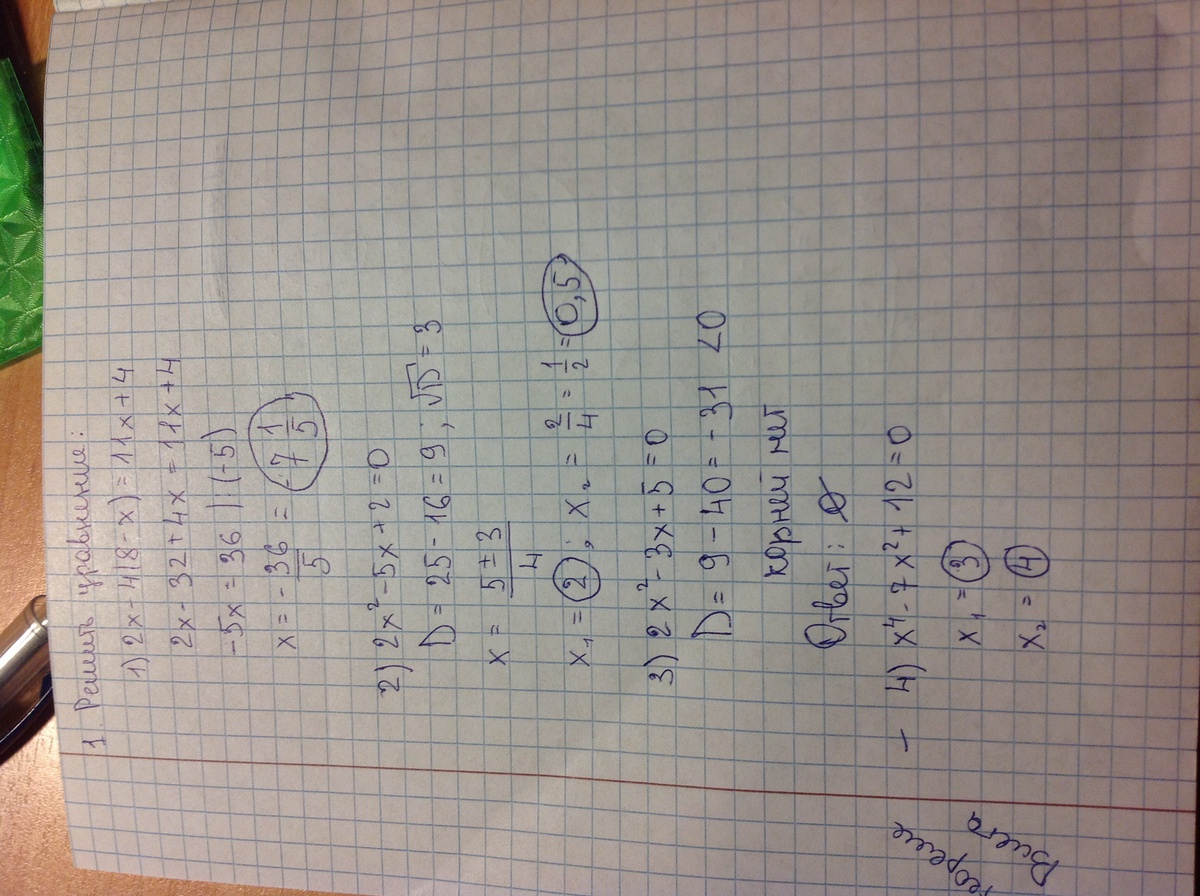 1. Решить уравнения:
1) 2x - 4(8 - x) = 11x + 4
2x - 32 + 4x = 11x + 4
-5x = 36 | : (-5)
x = -36/5 = -7 1/5
2) 2x² - 5x + 2 = 0
D = 25 - 16 = 9 ; √D = 3
x = (5 ± 3)/4
x₁ = 2 ; x₂ = 2/4 = 1/2 = 0,5
3) 2x² - 3x + 5 = 0
D = 9 - 40 = -31 < 0
корней нет
Ответ: ∅
- 4) x⁴ - 7x² + 12 = 0
x₁ = 3
x₂ = 4
теореме
Виета